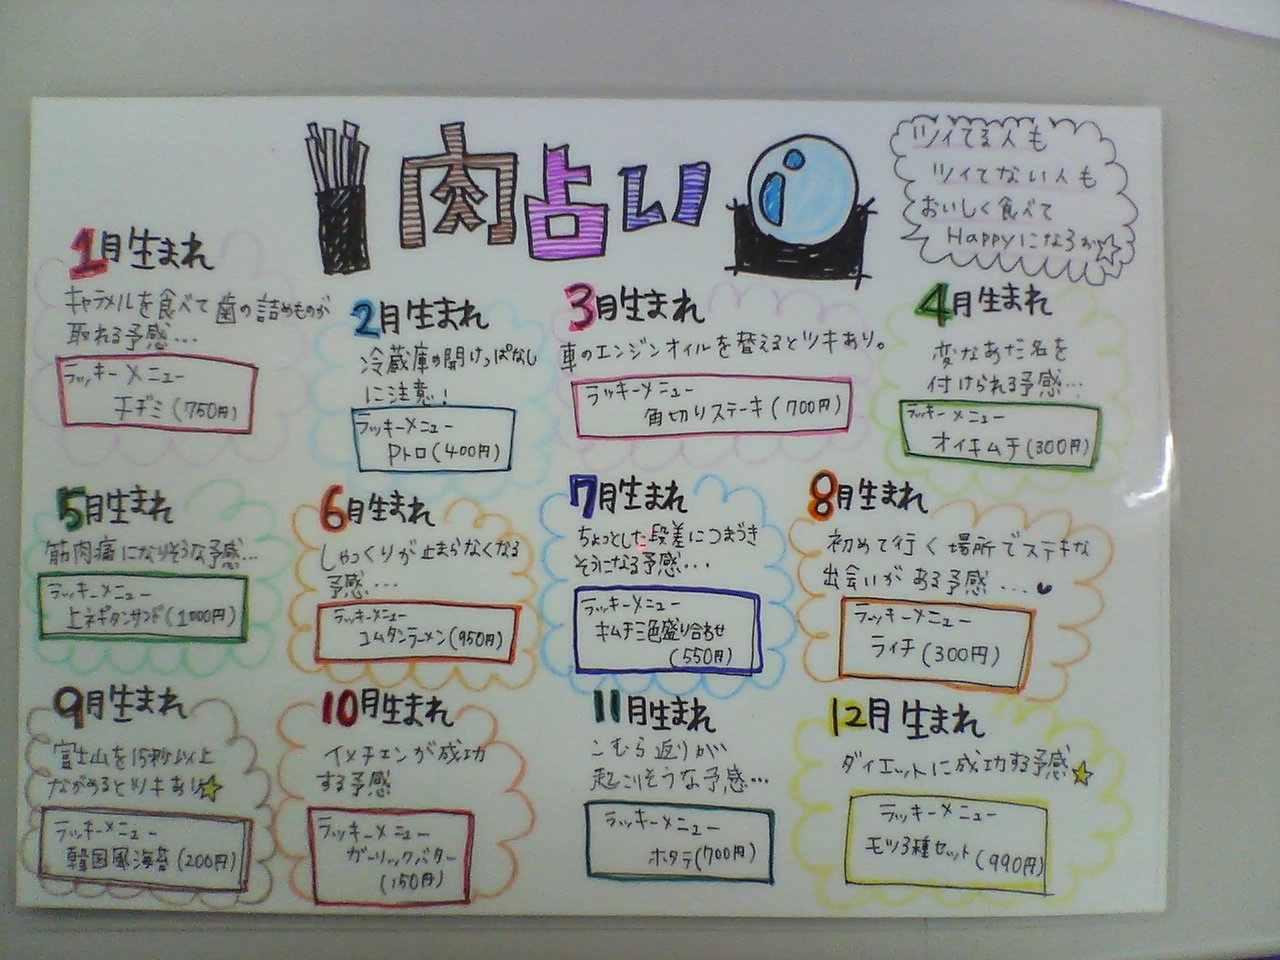 肉占い
ツイてる人も
ツイてない人も
おいしく食べて
Happyになろうか☆
1月生まれ
キャラメルを食べて歯の詰めものが
取れる予感…
ラッキーメニュー
チヂミ(750円)
2月生まれ
冷蔵庫の開けっぱなし
に注意!
ラッキーメニュー
Pトロ(400円)
3月生まれ
車のエンジンオイルを替えるとツキあり。
ラッキーメニュー
角切りステーキ(700円)
4月生まれ
変なあだ名を
付けられる予感…
ラッキーメニュー
オイキムチ(300円)
5月生まれ
筋肉痛になりそうな予感…
ラッキーメニュー
上ネギタンサンド(1000円)
6月生まれ
しゃっくりが止まらなくなる
予感…
ラッキーメニュー
コムタンラーメン(950円)
7月生まれ
ちょっとした段差につまづき
そうになる予感…
ラッキーメニュー
キムチ三色盛り合わせ
(550円)
8月生まれ
初めて行く場所でステキな
出会いがある予感…♥
ラッキーメニュー
ライチ(300円)
9月生まれ
富士山を15秒以上
ながめるとツキあり☆
ラッキーメニュー
韓国風海苔(200円)
10月生まれ
イメチェンが成功
する予感
ラッキーメニュー
ガーリックバター
(150円)
11月生まれ
こむら返りが
起こりそうな予感…
ラッキーメニュー
ホタテ(700円)
12月生まれ
ダイエットに成功する予感☆
ラッキーメニュー
モツ3種セット(990円)